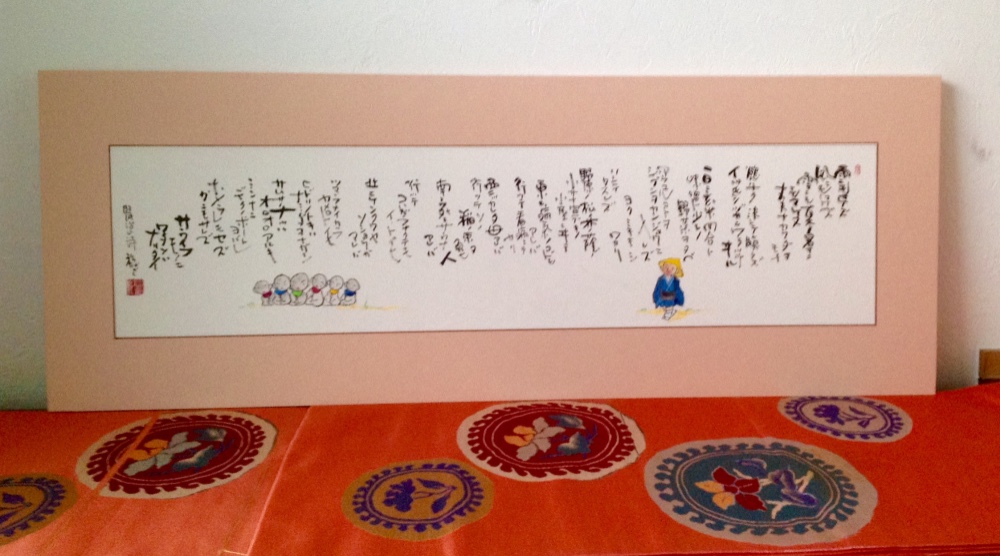 雨ニモマケズ
風ニモマケズ
雪ニモ夏ノ暑サニモ
マケヌ
丈夫ナカラダヲ
モチ
慾ハナク決シテ瞋ラズ
イツモシヅカニワラッテ
ヰル
一日ニ玄米四合ト
味噌ト少シノ
野菜ヲタベ
アラユルコトヲ
ジブンヲカンジョウニ
入レズニ
ヨクミキキシ
ワカリ
ソシテ
ワスレズ
野原ノ松ノ林ノ蔭ノ
小サナ萱ブキノ
小屋ニヰテ
東ニ病気ノコドモ
アレバ
行ッテ看病シテ
ヤリ
西ニツカレタ母
アレバ
行ッテソノ
稲ノ束ヲ
負ヒ
南ニ死ニサウナ人
アレバ
行ッテ
コハガラナクテモ
イヽトイヒ
北ニケンクヮヤ
ソショウガ
アレバ
ツマラナイカラ
ヤメロトイヒ
ヒドリノトキハ
ナミダヲナガシ
サムサノナツハ
オロオロアルキ
ミンナニ
デクノボート
ヨバレ
ホメラレモセズ
クニモサレズ
サウイフ
モノニ
ワタシハ
ナリタイ